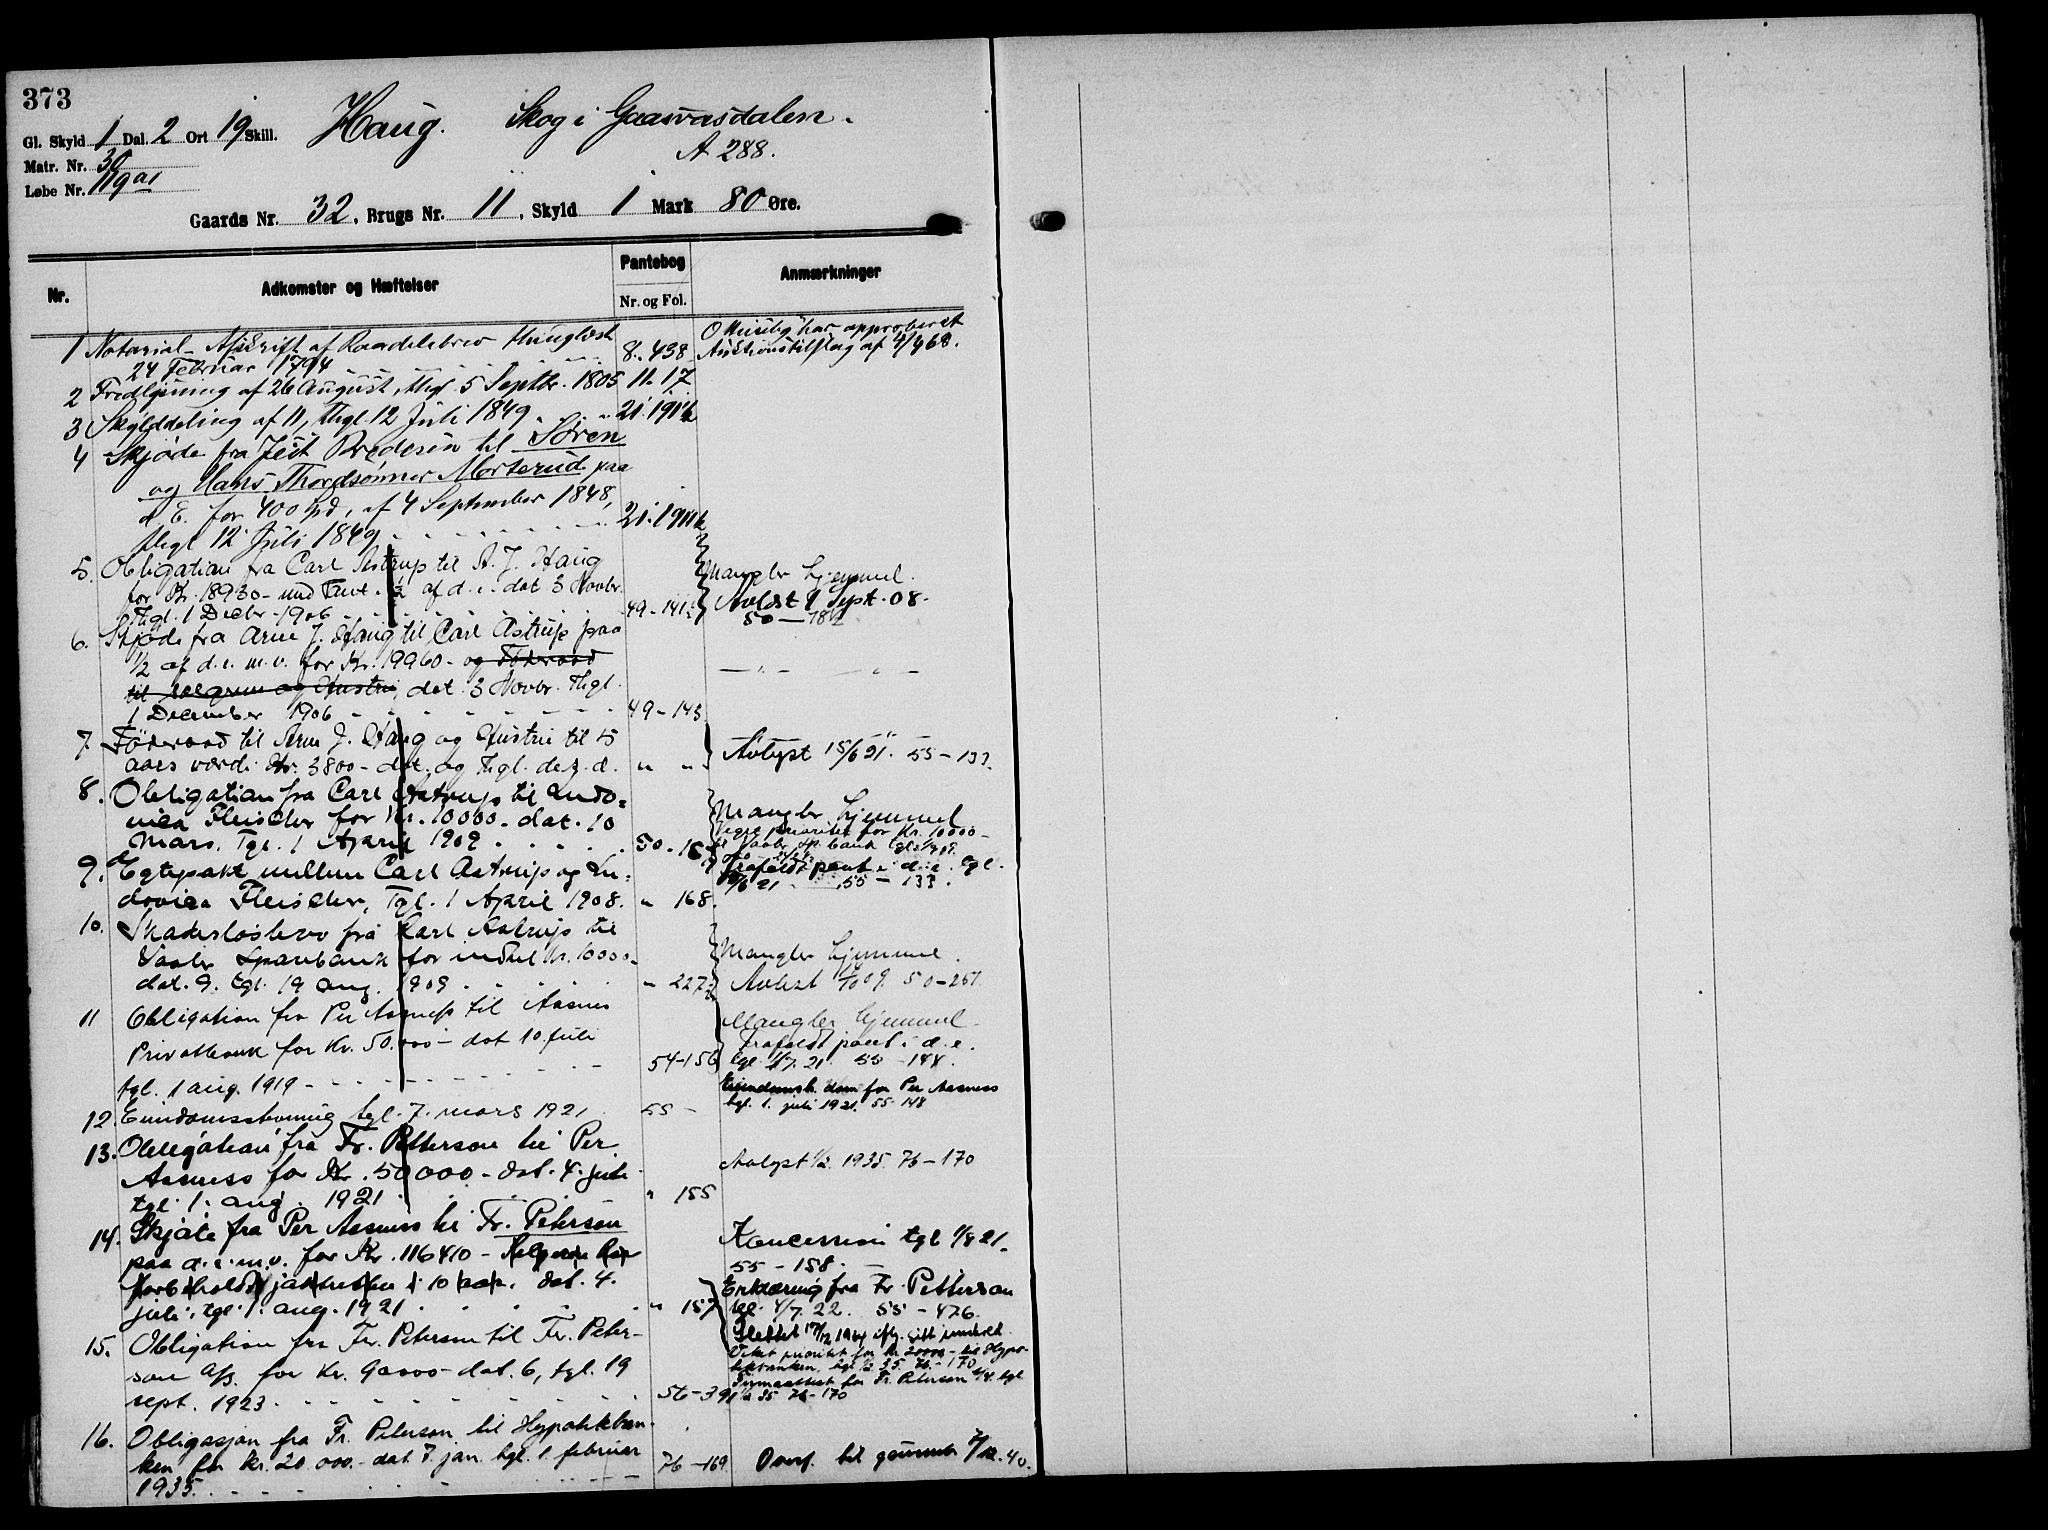 373
Haug. Skog i Gaasvasdalen.
A 288.
Gl. Skyld 1 Dal. 2 Ort 19 Skill.
Matr. Nr. 30
Løbe Nr. 119a1
Gaards Nr. 32, Brugs Nr. 11, Skyld 1 Mark 80 Øre.
Nr. Adkomster og Hæftelser Pantebog Nr. og Fol. Anmærkninger
1 Notarial-Afskrift af Raadelsbrev thinglæst 8. 438
24 Februar 1794
har approberet
Auktionstilslag af
2 Fredlysning af 26 August, thgl. 5 Septbr. 1805 11. 17
3 Skylddeling af 11, thgl. 12 Juli 1849 21. 191
4 Skjøde fra Pedersen til Sören
og Hans Thordsønner Morterud paa
d. E. for 400 Spd, af 4 September 1848,
thgl 12 Juli 1849 21. 191
5. Obligation fra Carl Astrup til A. J. Haug
for Kr. 18930 - med Pant i 1/2 af d. e. dat 3 Novbr.
Thgl. 1 Decbr. 1906 49-141
Mangler hjemmel.
Avløst 1 Sept. 08.
50-78
6. Skjøde fra Arne J. Haug til Carl Astrup paa
1/2 af d. e. m. v. for Kr. 19960 - og Föderaad
til sælgeren og Hustru, dat. 3 Novbr. Thgl.
1 December 1906 49-143
7. Föderaad til Arne J. Haug og Hustru til 5
aars værdi Kr. 3800 - dat. og Thgl. d. d. " "
Avlyst 15/6 21. 55-133.
8. Obligation fra Carl Astrup til Ludo=
vica Fleischer for Kr. 10000 - dat. 10
Mars, Tgl. 1 April 1909 50-
Mangler hjemmel
Veget prioritet for Kr. 10000 -
frafaldt pant i d. e. tgl.
21. 55-133.
9. Egtepakt mellem Carl Astrup og Lu=
dovica Fleischer, Tgl. 1 April 1908. " 168.
10. Skadesløsbrev fra Carl Astrup til
Vaaler Sparebank for indtil Kr. 10000 -
dat. 9. tgl. 19 aug. 1909 " 227
Mangler hjemmel.
Avlest 09. 50-251.
11 Obligation fra Per Aasnes til Aasnes
Privatbank for Kr. 50.000 - dat 10. juli
tgl. 1 aug. 1919 54-156
Mangler hjemmel
frafaldt pant i d. e.
tgl. 1/7. 21. 55-144.
12. Eiendomsstevning tgl. 7. mars 1921 55-
Eiendomsh. dom for Per Aasness
tgl. 1. juli 1921. 55-148
13. Obligation fra Fr. Petterson til Per
Aasness for Kr. 50000 - dat. 4. juli
tgl. 1. aug. 1921 " 155
Avlyst 1/2. 1935. 76-170
14. Skjøte fra Per Aasness til Fr. Peterson
paa d. e. m. v. for Kr. 116410 - Selgeren har
forbeholdt jaktretten i 10 aar. dat. 4.
juli, tgl. 1. aug. 1921 " 157
Koncession tgl 1/8 21.
55-158.
Erklæring fra Fr. Petterson
tgl. 4/7. 22. 55-476.
15. Obligation fra Fr. Peterson til Fr. Peter-
son A/S. for Kr. 90000 - dat. 6, tgl. 19
sept. 1923 56-391
Veket prioritet for kr 20000 - til Hypo-
tekbanken, tgl. 1/2. 35. 76-170
Firmaattest for Fr. Peterson tgl
1/2 35 76-170
16. Obligasjon fra Fr. Peterson til Hypotekban-
ken for kr. 20 000.- dat 7 jan. tgl. 1. februar
1935. 76-169
Overf. til grunnb. 2/12. 40.